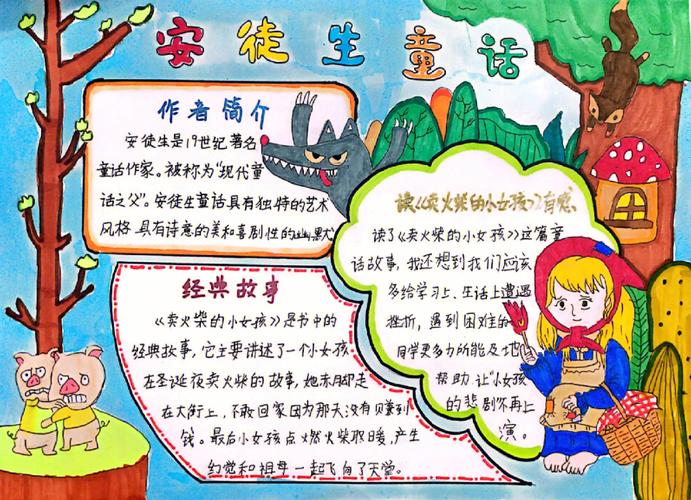 安徒生童话
作者简介
安徒生是19世纪著名
童话作家。被称为“现代童
话之父”。安徒生童话具有独特的艺术
风格,具有诗意的美和喜剧性的幽默
读《卖火柴的小女孩》有感
读了《卖火柴的小女孩》这篇童
话故事,我还想到我们应该
多给学习上、生活上遭遇
挫折,遇到困难的
同学更多力所能及地
帮助,让“小女孩
的悲剧不再上
演。
经典故事
《卖火柴的小女孩》是书中的
经典故事,它主要讲述了一个小女孩
在圣诞夜卖火柴的故事,她赤脚走
在大街上,不敢回家因为那天没有赚到
钱。最后小女孩点燃火柴取暖,产生
幻觉和祖母一起飞向了天堂。